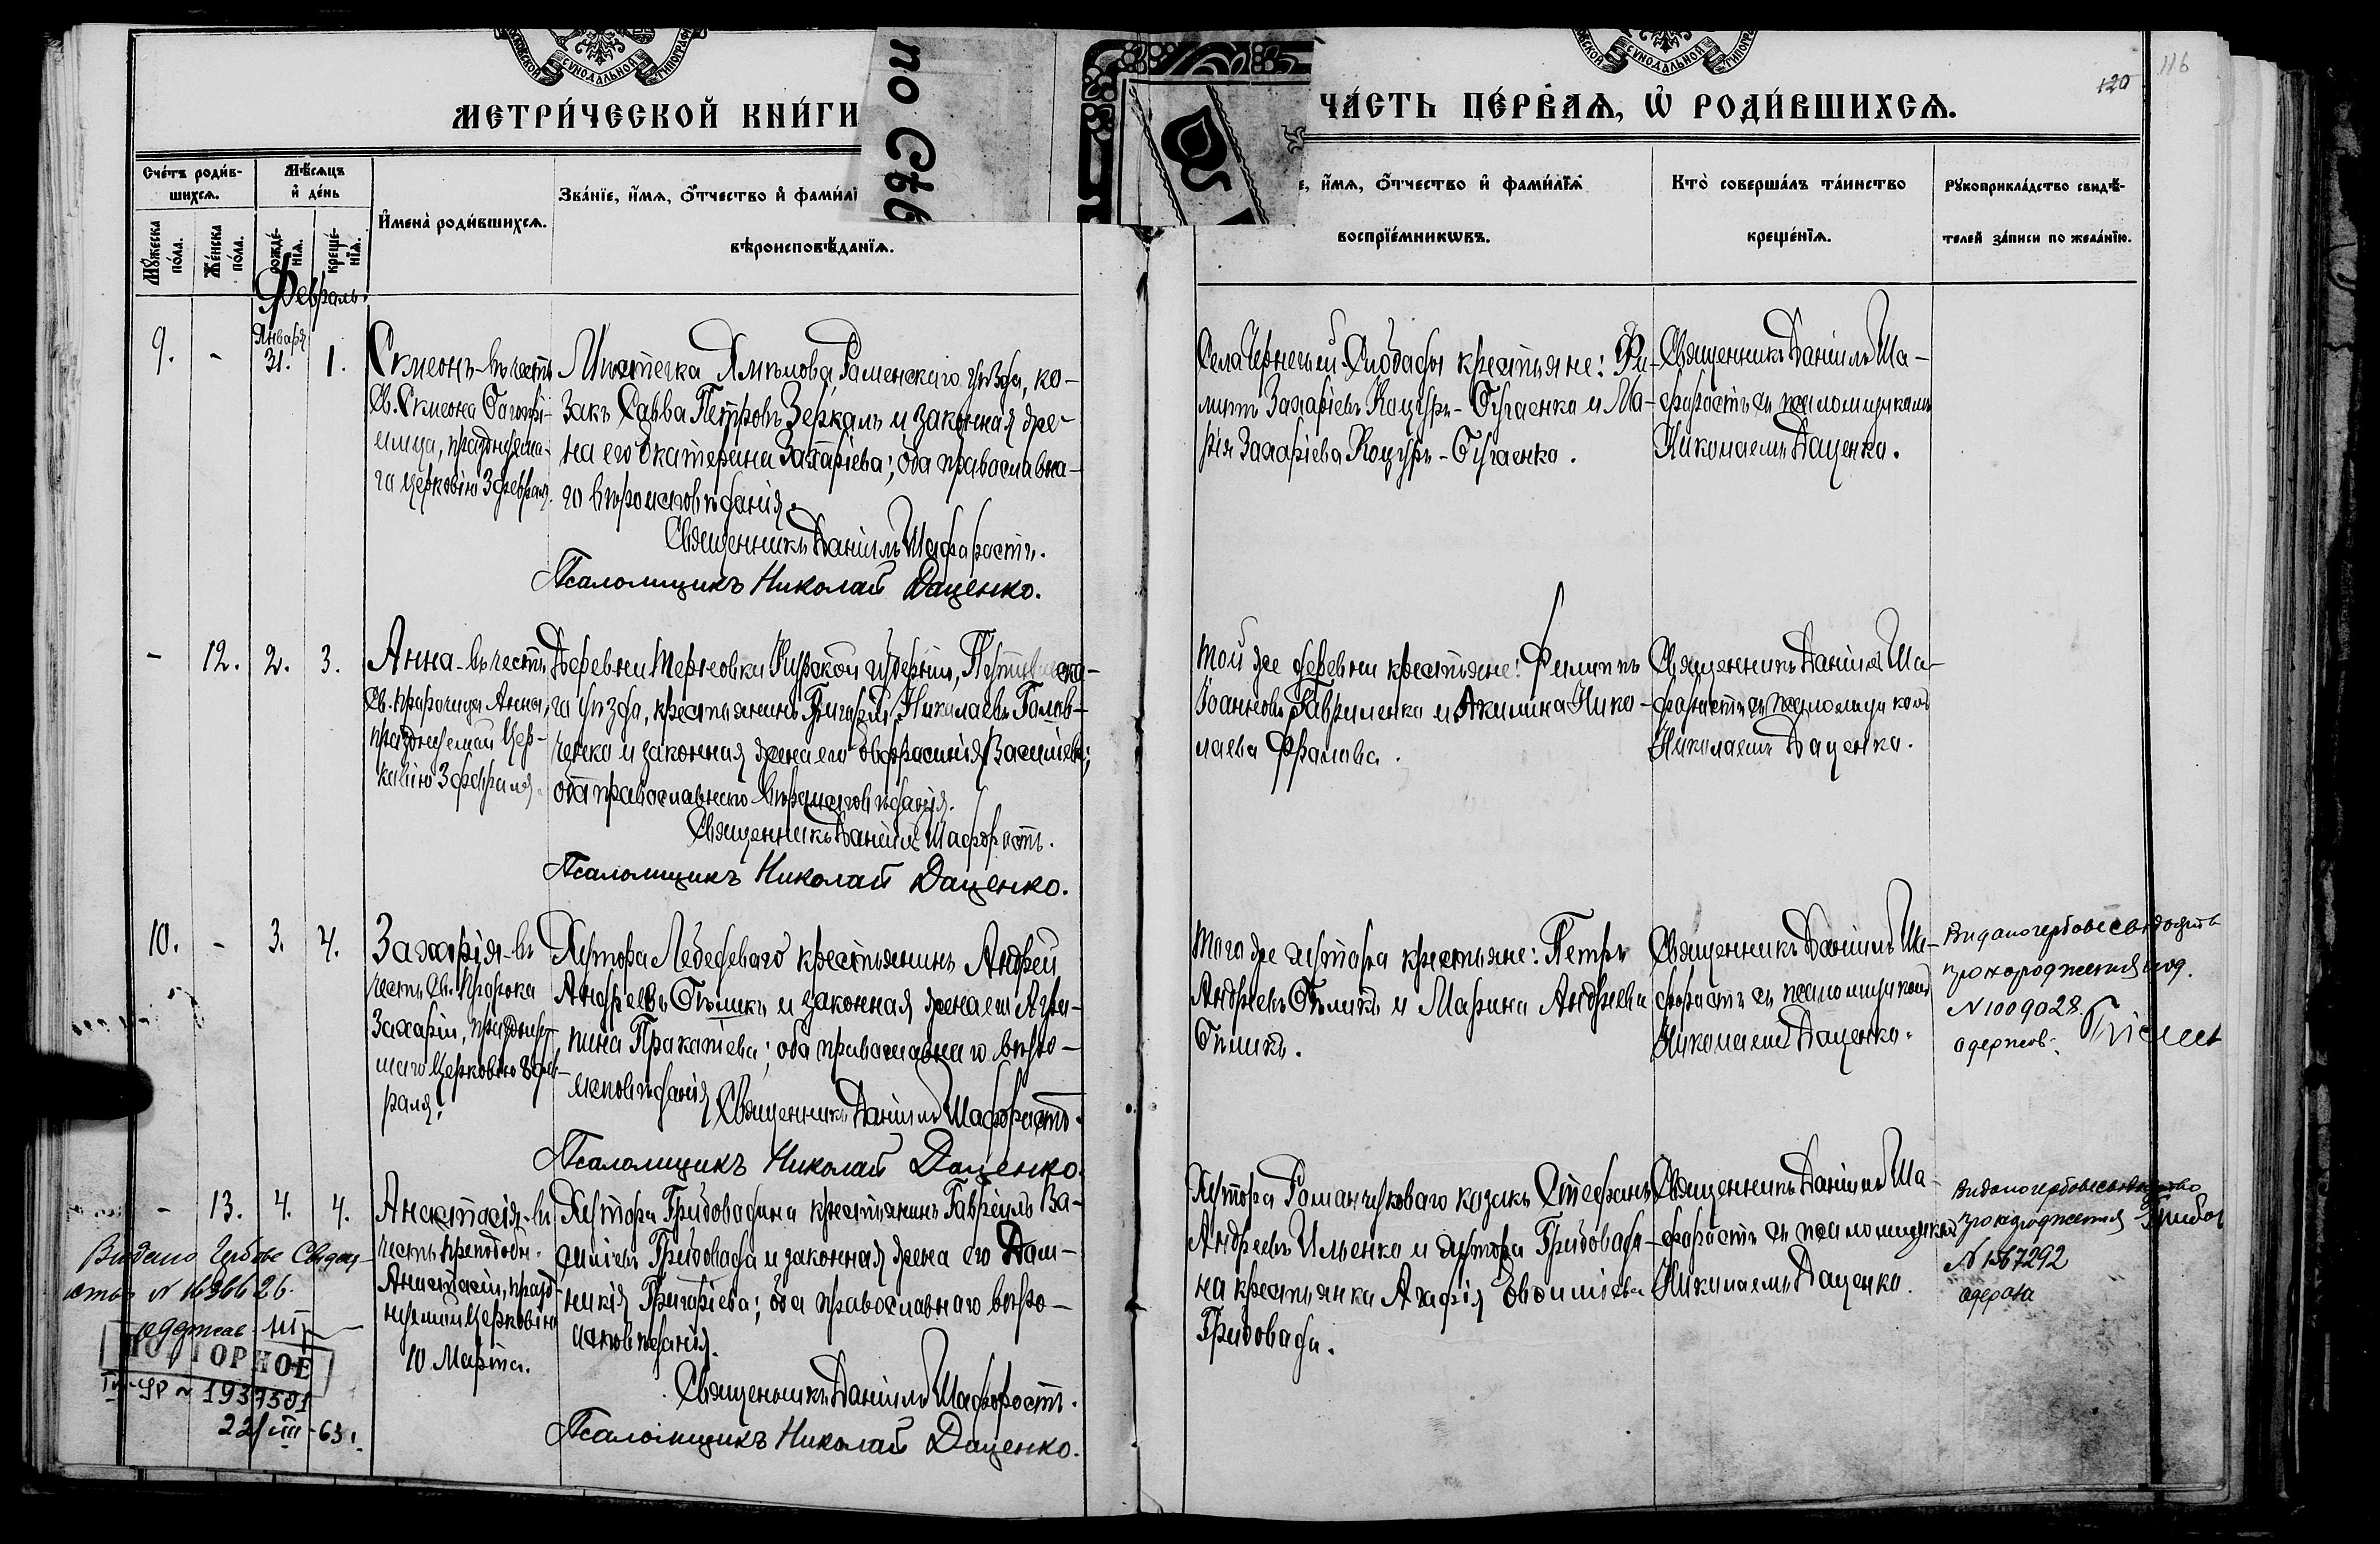 МОСКОВСКОЙ СѴНОДАЛЬНОЙ ТИПОГРАФ
СѴНОДАЛЬНОЙ ТИПОГРАФ
по Сѣв
120
116
МЕТРИ́ЧЕСКОЙ КНИ́ГИ
ЧА́СТЬ ПЕ́РВАѦ, Ѽ РОДИ́ВШИХСѦ.
Сче́тъ роди́в-
шихсѧ.
Мѣ́сѧцъ
и҆ де́нь
Мꙋ́жеска по́ла.
Же́нска по́ла.
рожде́-нїѧ.
креще́-нїѧ.
И҆мена̀ роди́вшихсѧ.
Зва́нїе, и҆́мѧ, ѻ҆́тчество и҆ фами́лї
вѣроисповѣ́данїѧ.
е, и҆́мѧ, ѻ҆́тчество и҆ фами́лїѧ
воспрїе́мникѡвъ.
Кто̀ соверша́лъ та́инство
креще́нїѧ.
Рꙋкоприкла́дство свидѣ́-
телей за́писи по жела́нїю.
Февраль.
9. - Января 31. 1.
Симеонъ въ честь
Св. Симеона Богопрі-
имца, празднуема-
го церковію 3 февраля.
Мѣстечка Хмѣлова, Роменскаго уѣзда, ко-
закъ Савва Петровъ Зеркаль и законная же-
на его Екатерина Захаріева; оба православна-
го вѣроисповѣданія.
Священникъ Даніилъ Шафоростъ.
Псаломщикъ Николай Даценко.
Села Чернечей Слободы крестьяне: Фи-
липъ Захаріевъ Коцуръ-Бугаенко и Ма-
рія Захаріева Коцуръ-Бугаенко.
Священникъ Даніилъ Ша-
форостъ съ псаломщикомъ
Николаемъ Даценко.
- 12. 2. 3.
Анна - въ честь
Св. пророчицы Анны,
празднуемой Цер-
ковію 3 февраля.
Деревни Терновки Курской губерніи, Путивльска-
го уѣзда, крестьянинъ Григорій Николаевъ Голов-
ченко и законная жена его Евфросинія Василіева;
оба православнаго вѣроисповѣданія.
Священникъ Даніилъ Шафоростъ.
Псаломщикъ Николай Даценко.
Той же деревни крестьяне: Филиппъ
Іоанновъ Гавриленко и Акилина Нико-
лаева Фролова.
Священникъ Даніилъ Ша-
форостъ съ псаломщикомъ
Николаемъ Даценко.
10. - 3. 4.
Захарія - въ
честь Св. Пророка
Захаріи, празднуе-
маго Церковію 8 фев-
раля.
Хутора Лебедеваго крестьянинъ Андрей
Андреевъ Бѣликъ и законная жена его Агри-
пина Прокопіева; оба православнаго вѣро-
исповѣданія.
Священникъ Даніилъ Шафоростъ.
Псаломщикъ Николай Даценко.
Того же хутора крестьяне: Петръ
Андреевъ Бѣликъ и Марина Андреева
Бѣликъ.
Священникъ Даніилъ Ша-
форостъ съ псаломщикомъ
Николаемъ Даценко.
Видано гербове свідоцтв
про народження
№ 1009028.
одержав:
- 13. 4. 4.
Анастасія - въ
честь преподобн.
Анастасіи, празд-
нуемой Церковію
10 Марта.
Хутора Грибовадина крестьянинъ Гавріилъ Ва-
силіевъ Грибовода и законная жена его Дом-
никія Григоріева; оба православнаго вѣро-
исповѣданія.
Священникъ Даніилъ Шафоростъ.
Псаломщикъ Николай Даценко.
Хутора Романчуковаго козакъ Стефанъ
Андреевъ Ильенко и хутора Грибовади-
на крестьянка Агафія Евѳиміева
Грибовода.
Священникъ Даніилъ Ша-
форостъ съ псаломщикомъ
Николаемъ Даценко.
Видано гербове свідоцтво
про народження
№ 1567292
одержа
Видано гербове Свідоц-
ство № 1636626.
одержав
ПОВТОРНОЕ
№ 1937501
22/III-63 г.